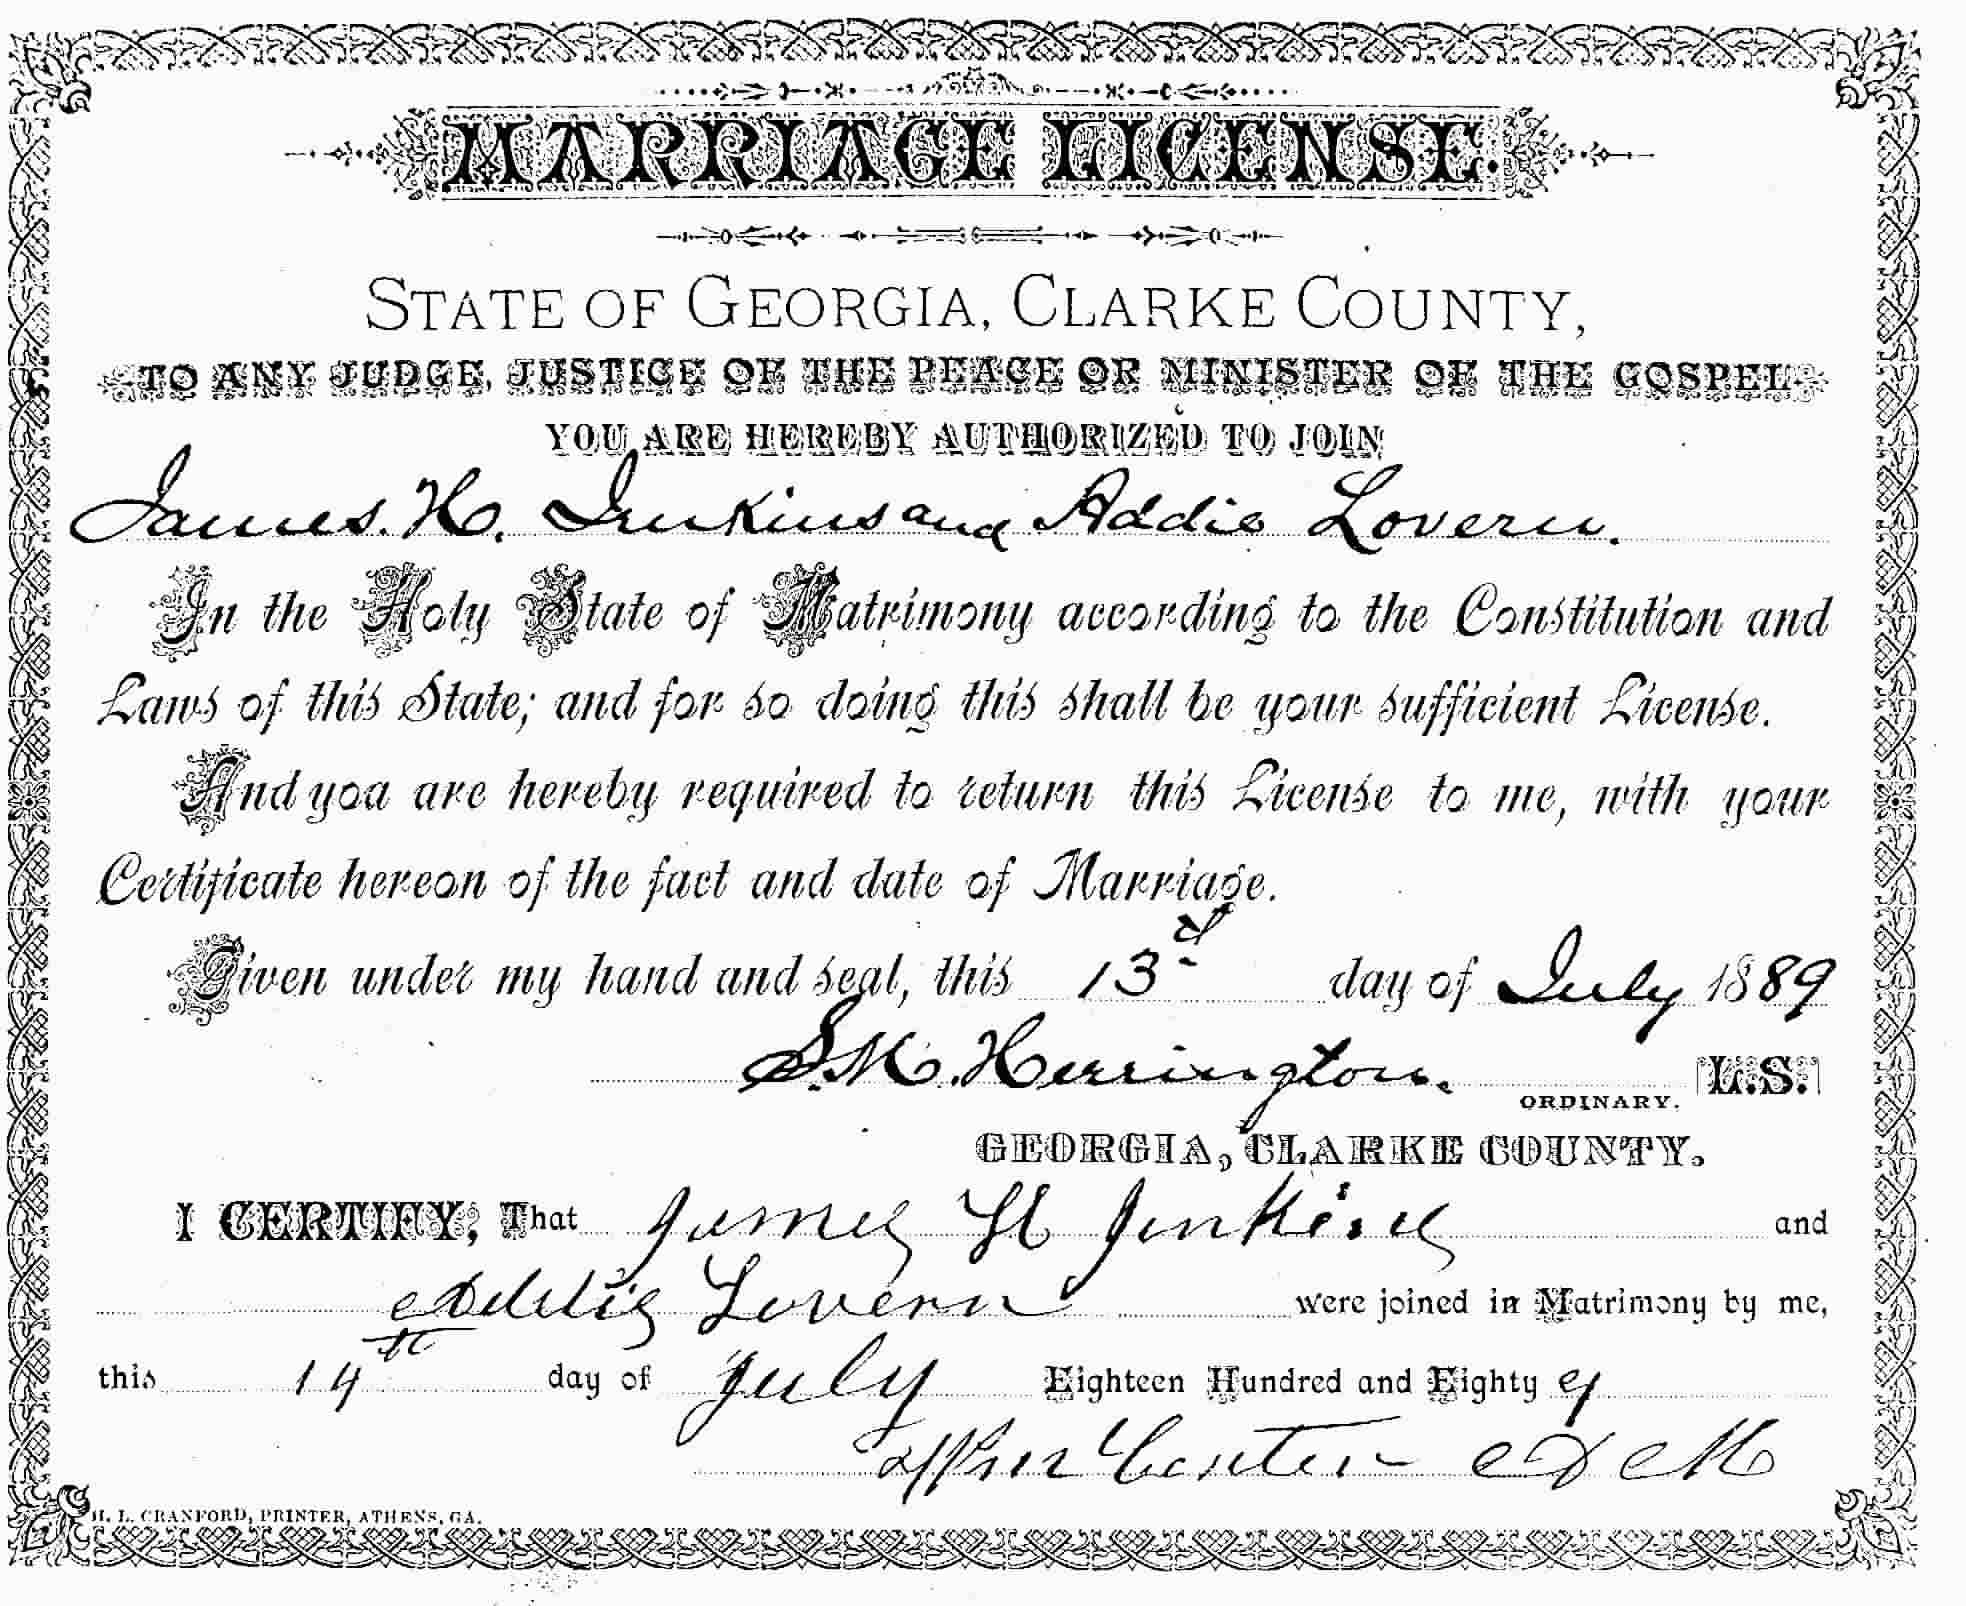 MARRIAGE LICENSE.
STATE OF GEORGIA, CLARKE COUNTY,
TO ANY JUDGE, JUSTICE OF THE PEACE OR MINISTER OF THE GOSPEL
YOU ARE HEREBY AUTHORIZED TO JOIN
James. H. Jenkins and Addie Lovern.
In the Holy State of Matrimony according to the Constitution and
Laws of this State; and for so doing this shall be your sufficient License.
And you are hereby required to return this License to me, with your
Certificate hereon of the fact and date of Marriage.
Given under my hand and seal, this 13d day of July 1889
S. M. Herrington.
ORDINARY. L.S.
GEORGIA, CLARKE COUNTY.
I CERTIFY, That James H Jenkins and
Addie Lovern were joined in Matrimony by me,
this 14th day of July Eighteen Hundred and Eighty 9
M
H. L. CRANFORD, PRINTER, ATHENS, GA.